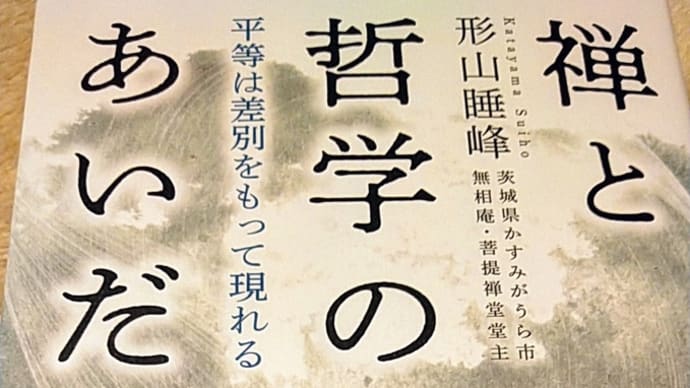 禅と
Katayama Suiho
形山睡峰
茨城県かすみがうら市
無相庵・菩提禅堂堂主
哲学の
平等は差別をもって現れる
あいだ